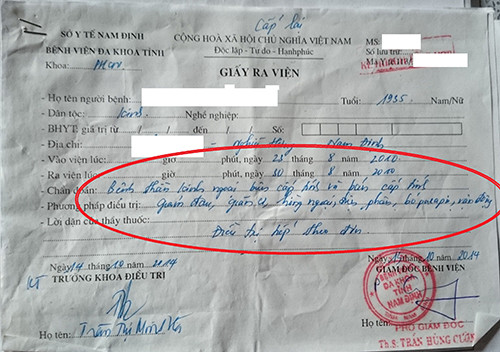 Cấp lại
SỞ Y TẾ NAM ĐỊNH
CỘNG HOÀ XÃ HỘI CHỦ NGHĨA VIỆT NAM
MS:
BỆNH VIỆN ĐA KHOA TỈNH
Độc lập - Tự do - Hanhphúc
Số lưu trữ:
Khoa: PHCN
Mã Y tế
GIẤY RA VIỆN
- Họ tên người bệnh: Tuổi: 1935 Nam/Nữ
- Dân tộc: kinh Nghề nghiệp:
- BHYT: giá trị từ / / đến / / Số:
- Địa chỉ: Nghĩa Hưng Nam Định
- Vào viện lúc: giờ phút, ngày 23 tháng 8 năm 2010
- Ra viện lúc: giờ phút, ngày 30 tháng 8 năm 2010
- Chẩn đoán: Bệnh thần kinh ngoại biên cấp tính và bán cấp tính
- Phương pháp điều trị: Giảm đau, hồng ngoại, điện phân, bó parafin, vận động
- Lời dặn của thầy thuốc:
Điều trị tiếp theo đơn
Ngày 14 tháng 10 năm 2014
Ngày tháng 10 năm 2014
TRƯỞNG KHOA ĐIỀU TRỊ
GIÁM ĐỐC BỆNH VIỆN
KT
BỆNH VIỆN
ĐA KHOA
TỈNH
NAM ĐỊNH
Họ tên: Trần Thị Minh
Họ tên:
PHÓ GIÁM ĐỐC
Th.S. TRẦN HÙNG CƯỜNG